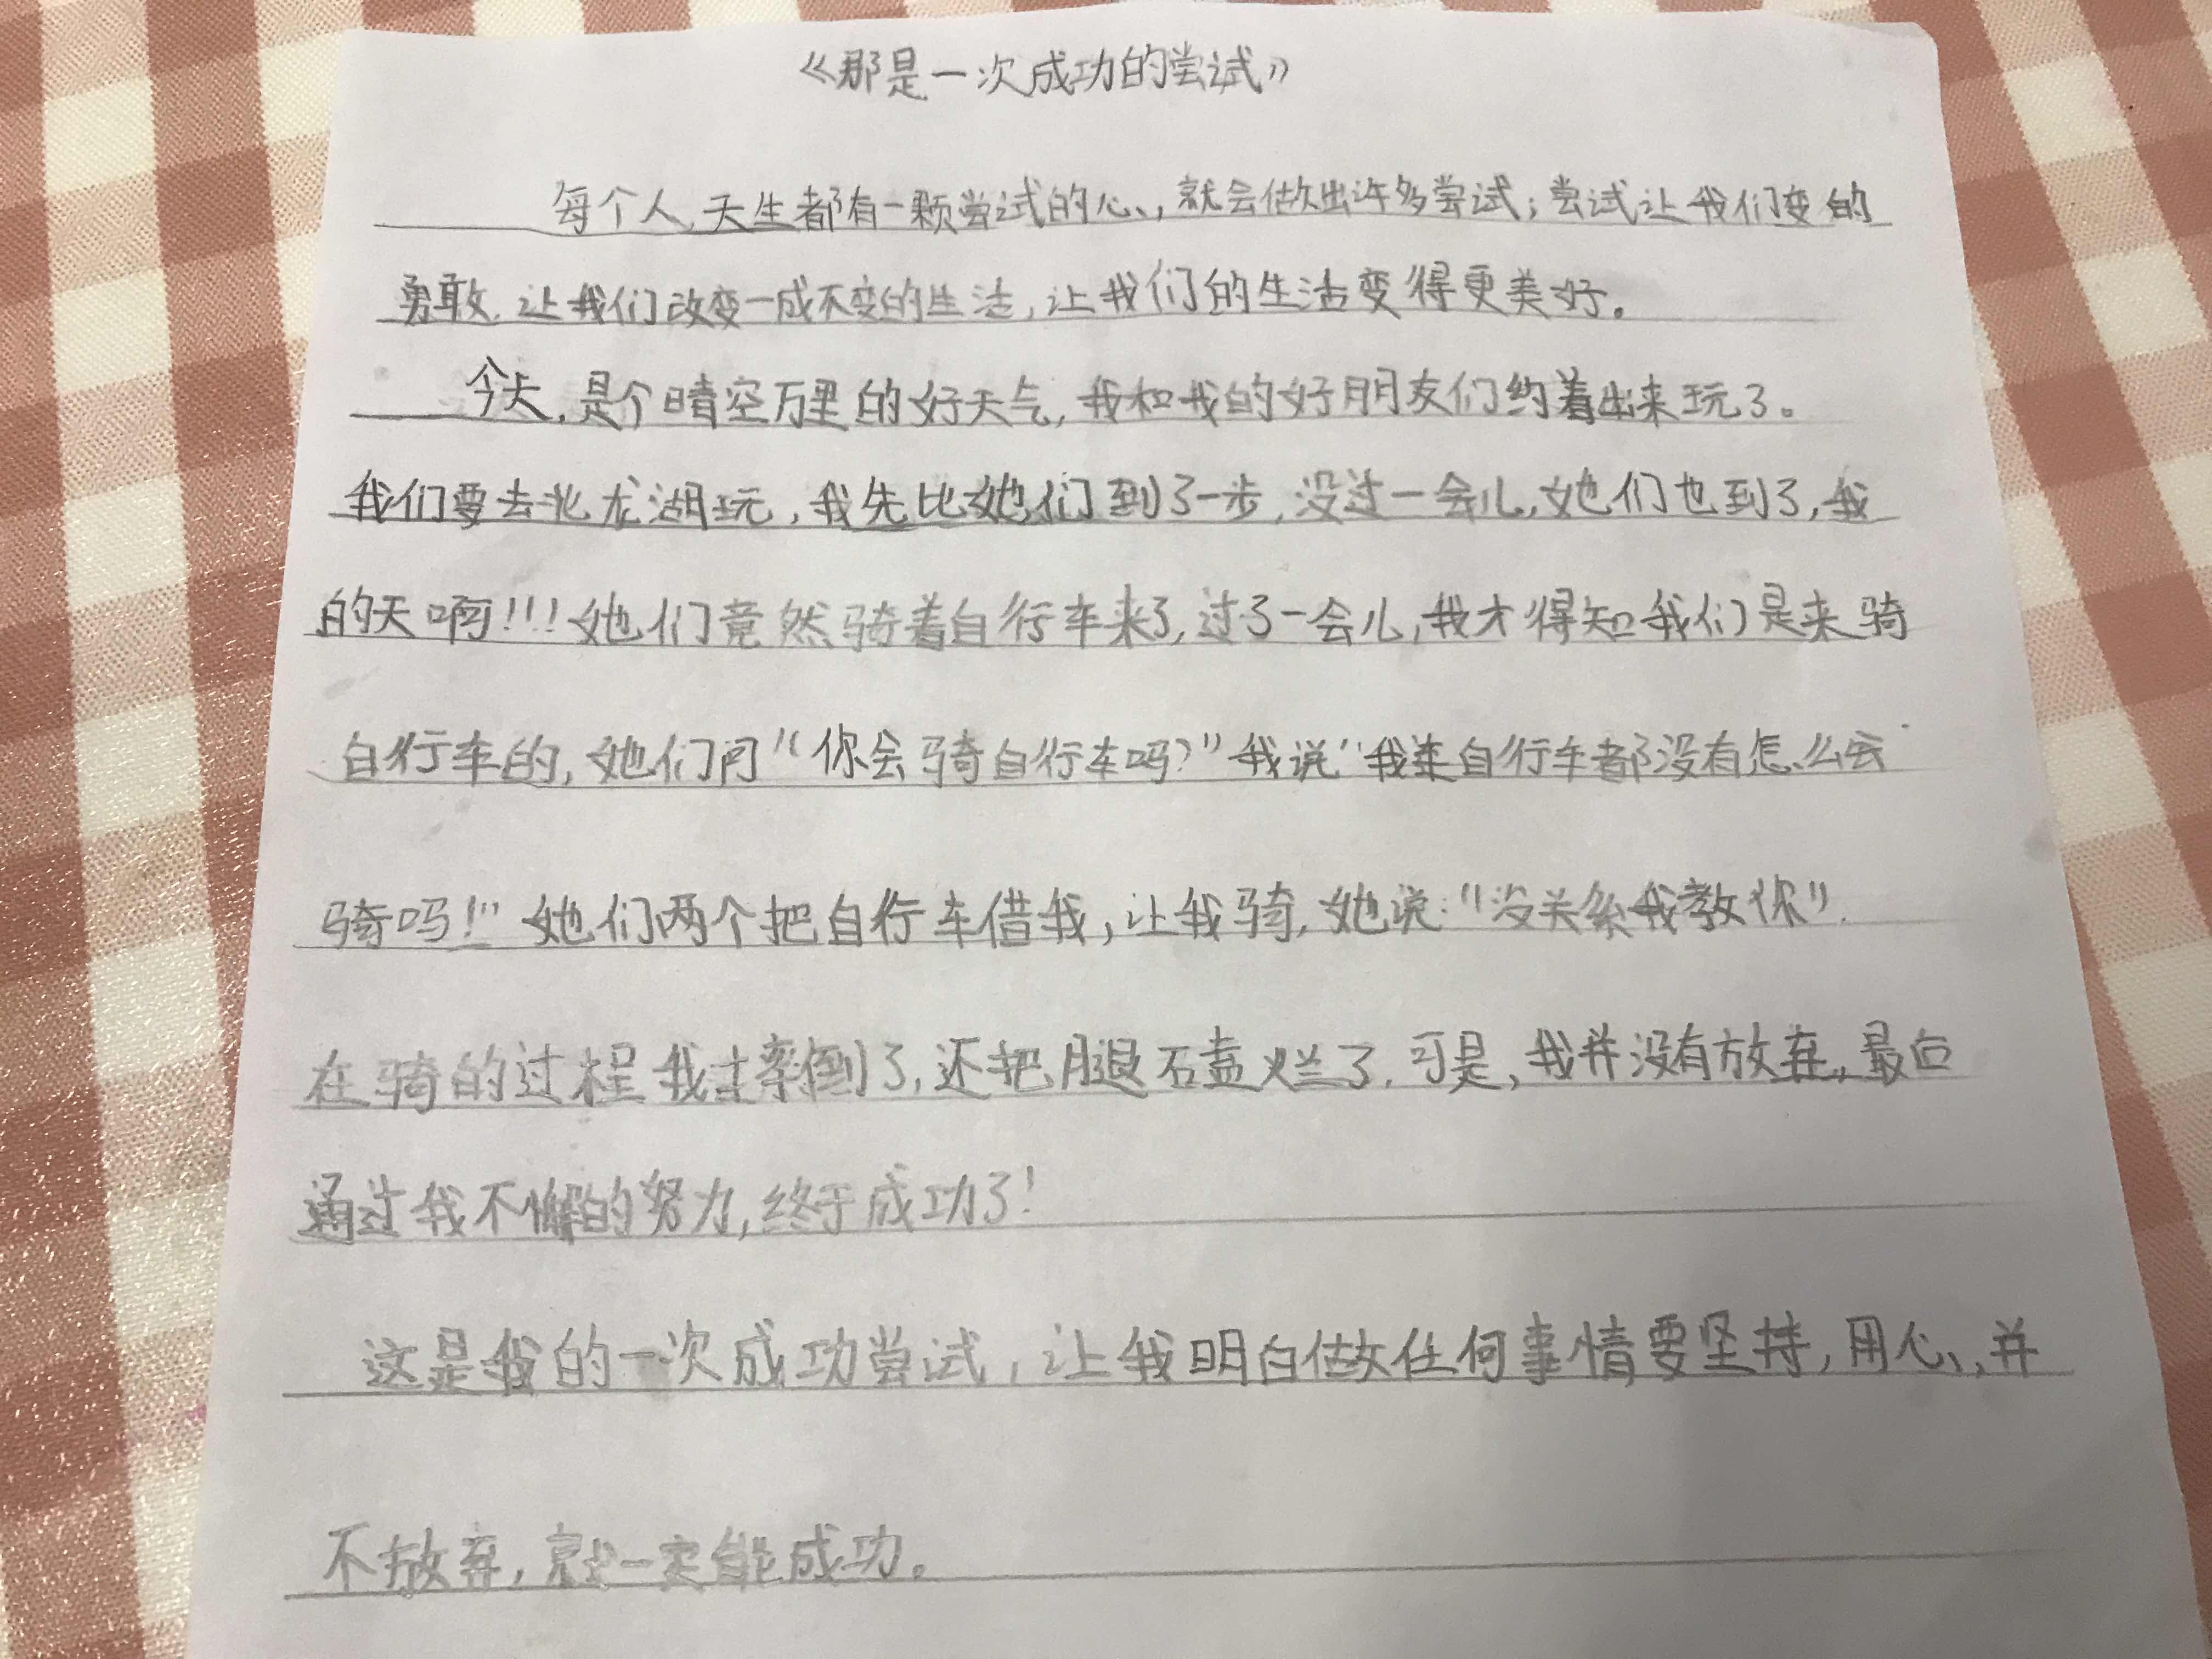 《那是一次成功的尝试》
每个人,天生都有一颗尝试的心,就会做出许多尝试;尝试让我们变的
勇敢,让我们改变一成不变的生活,让我们的生活变得更美好。
今天,是个晴空万里的好天气,我和我的好朋友们约着出来玩了。
我们要去北龙湖玩,我先比她们到了一步,没过一会儿,她们也到了,我
的天啊!!!她们竟然骑着自行车来了,过了一会儿,我才得知我们是来骑
自行车的,她们问“你会骑自行车吗?”我说“我连自行车都没有怎么去
骑吗!”她们两个把自行车借我,让我骑,她说:“没关系我教你”.
在骑的过程我摔倒了,还把腿磕烂了.可是,我并没有放弃,最后
通过我不懈的努力,终于成功了!
这是我的一次成功尝试,让我明白做任何事情要坚持,用心,并
不放弃,就一定能成功。